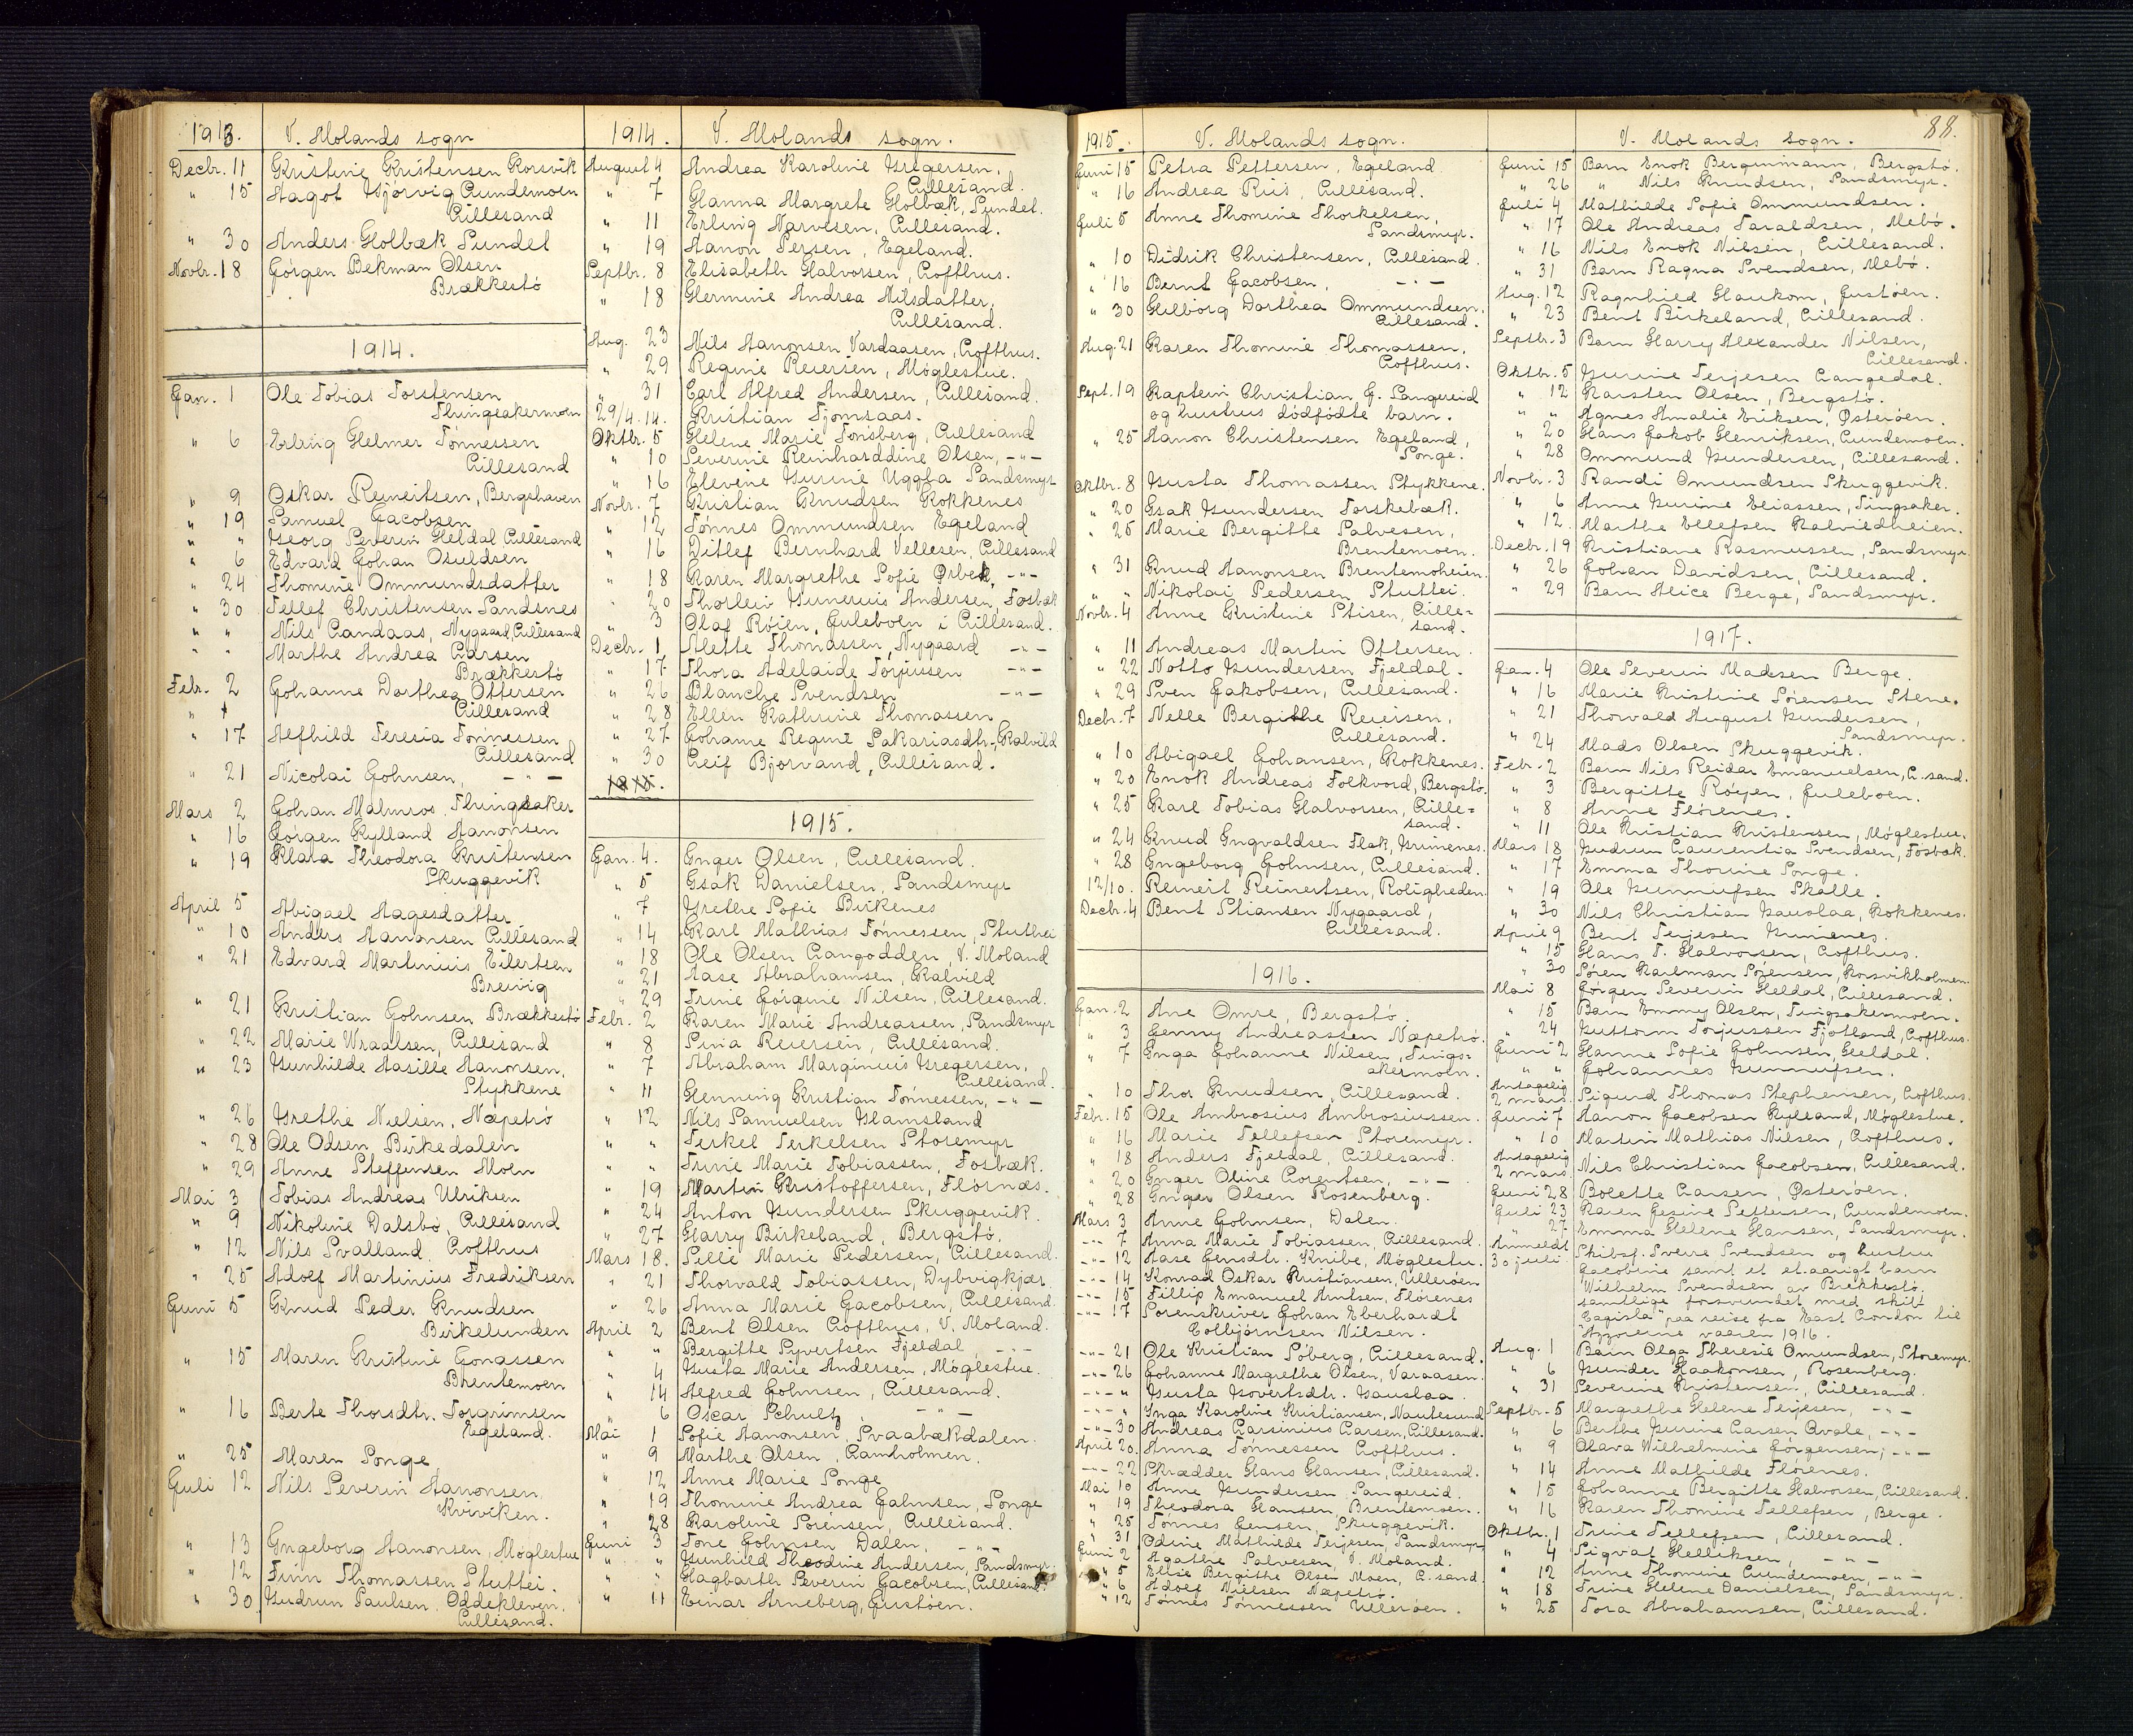 1913. V. Molands sogn
Decbr. 11 Kristine Kristensen Korsvik
" 15 Aagot Gjörvig Lundemoen
Lillesand
" 30 Anders Holbæk Sundet
Novbr. 18 Jörgen Bekman Olsen
Brækkestö
1914.
Jan. 1 Ole Tobias Torstensen
Thingsakermoen
" 6 Erling Helmer Tönnessen
Lillesand
" 9 Oskar Reinertsen, Bergshaven
" 19 Samuel Jacobsen
" " Georg Severin Heldal Lillesand
" 6 Edvard Johan Osuldsen
" 24 Thomine Ommundsdatter
" 30 Tellef Christensen Sandsnes
" " Nils Landaas, Nygaard, Lillesand
" " Marthe Andrea Larsen
Brækkestö
Febr. 2 Johanne Dorthea Ottersen
Lillesand
" 17 Alfhild Teresia Tönnessen
Lillesand
" 21 Nicolai Johnsen, — " —
Mars 2 Johan Malmros, Thingsaker
" 16 Jörgen Kylland Aanonsen
" 19 Klara Theodora Kristensen
Skuggevik
April 5 Abigael Aagesdatter
" 10 Anders Aanonsen Lillesand
" 21 Edvard Martinius Eilertsen
Breivig
" 21 Kristian Johnsen Brækkestö
" 22 Marie Wraalsen, Lillesand
" 23 Gunhilde Aasille Aanonsen,
Stykkene
" 26 Grethe Nielsen, Næpetrö
" 28 Ole Olsen Birkedalen
" 29 Anne Steffensen Moen
Mai 3 Tobias Andreas Ulriksen
" 9 Nikoline Dalsbö, Lillesand
" 12 Nils Svalland, Lofthus
" 25 Adolf Martinius Fredriksen
Juni 5 Knud Peder Knudsen
Birkelunden
" 15 Maren Kristine Jonassen
Brentemoen
" 16 Berte Thorsdtr. Torgrimsen
Egeland.
" 25 Maren Songe
Juli 12 Nils Severin Aanonsen,
Kviviken.
" 13 Ingeborg Aanonsen, Möglestue
" 12 Finn Thomassen Stuttei.
" 30 Gudrun Paulsen, Oddekleven,
Lillesand.
1914. V. Molands sogn.
August 4 Andrea Karoline Gregersen,
Lillesand.
" 7 Hanna Margrete Holbæk, Sundet.
" 11 Erling Narvesen, Lillesand.
" 19 Aanon Persen, Egeland.
Septbr. 8 Elisabeth Halvorsen, Lofthus.
" 18 Hermine Andrea Nilsdatter,
Lillesand.
Aug. 23 Nils Aanonsen Vardaasen, Lofthus.
" 29 Regine Reiersen, Möglestue.
" 31 Carl Alfred Andersen, Lillesand.
29/4.14. Kristian Tjomsaas.
Oktbr. 5 Helene Marie Tonsberg, Lillesand
" 10 Severine Reinharddine Olsen, — " —
" 16 Elevine Gurine Uggla Sandsmyr
Novbr. 7 Kristian Knudsen Kokkenes
" 12 Tönnes Ommundsen Egeland
" 16 Ditlef Bernhard Vellesen, Lillesand
" 18 Karen Margrethe Sofie Örbek, — " —
" 20 Thorleiv Gunerius Andersen, Fosbæk
" 3 Olaf Röien, Juleboen i Lillesand.
Decbr. 1 Alette Thomassen, Nygaard — " —
" 17 Thora Adelaide Torjusen — " —
" 26 Blanche Svendsen — " —
" 28 Ellen Kathrine Thomassen
" 27 Johanne Regine Sakariasdtr., Kalvild
" 30 Leif Bjorvand, Lillesand.
1915.
Jan. 4. Inger Olsen, Lillesand.
" 5 Isak Danielsen, Sandsmyr
" 7 Grethe Sofie Birkenes
" 14 Karl Mathias Tönnessen, Stuthei
" 18 Ole Olsen Langodden, V. Moland
" 21 Aase Abrahamsen, Kalvild
" 29 Trine Jörgine Nilsen, Lillesand.
Febr. 2 Karen Marie Andreassen, Sandsmyr
" 8 Sina Reiersen, Lillesand.
" 7 Abraham Marginius Gregersen,
Lillesand.
" 11 Henning Kristian Tönnessen, — " —
" 12 Nils Samuelsen Glamsland
" " Terkel Terkelsen Storemyr
" " Trine Marie Tobiassen, Fosbæk.
" 19 Martin Kristoffersen, Flörnæs.
" 24 Anton Gundersen Skuggevik.
" 27 Harry Birkeland, Bergstö.
Mars 18. Sille Marie Pedersen, Lillesand.
" 21 Thorvald Tobiassen, Dybvigkjær
" 26 Anna Marie Jacobsen, Lillesand.
April 2 Bent Olsen Lofthus, V. Moland.
" " Bergitte Syvertsen Fjeldal, — " —
" 4 Gusta Marie Andersen, Möglestue.
" 14 Alfred Johnsen, Lillesand.
" 6 Oscar Schultz, — " —
Mai 1 Sofie Aanonsen, Svaabækdalen.
" 9 Marthe Olsen, Lamholmen.
" 12 Anne Marie Songe
" 19 Thomine Andrea Jahnsen, Songe
" 28 Karoline Sörensen, Lillesand.
Juni 3 Tone Johnsen Dalen, — " —
" " Gunhild Theodine Andersen, Sandsmyr.
" " Hagbarth Severin Jacobsen, Lillesand.
" 11 Einar Arneberg, Justöen.
1915. V. Molands sogn.
Juni 15 Petra Pettersen, Egeland
" 16 Andrea Riis, Lillesand.
Juli 8 Anne Thomine Thorkelsen,
Sandsmyr.
" 10 Didrik Christensen, Lillesand.
" 16 Bernt Jacobsen, — " —
" 30 Helborg Dorthea Ommundsen,
Lillesand.
Aug. 21 Karen Thomine Thomassen,
Lofthus.
Sept. 19 Kaptein Christian G. Sangereid
og hustrus dödfödte barn.
" 25 Aanon Christensen Egeland,
Songe.
Oktbr. 8 Gusta Thomassen Stykkene.
" 20 Isak Gundersen Torskebæk.
" 25 Marie Bergitte Salvesen,
Brentemoen.
" 31 Knud Aanonsen Brentemoheien.
" " Nikolai Pedersen Stuttei.
Novbr. 4 Anne Kristine Stisen, Lille-
sand.
" 11 Andreas Martin Ottersen.
" 22 Notto Gundersen Fjeldal.
" 29 Sven Jakobsen, Lillesand.
Decbr. 7 Nelle Bergithe Reiersen,
Lillesand.
" 10 Abigael Johansen, Kokkenes.
" 20 Enok Andreas Folkvord, Bergstö.
" 25 Karl Tobias Halvorsen, Lille-
sand.
" 24 Knud Ingvaldsen Flak, Grimenes.
" 28 Ingeborg Johnsen, Lillesand.
12/10. Reinert Reinertsen, Roligheden.
Decbr. 4 Bent Stiansen Nygaard,
Lillesand.
1916.
Jan. 2 Ane Omre, Bergstö.
" 3 Jenny Andreassen Næpetrö.
" 7 Inga Johanne Nilsen, Tings-
akermoen.
" 10 Thor Knudsen, Lillesand.
Febr. 15 Ole Ambrosius Ambrosiussen.
" 16 Marie Tellefsen Storemyr.
" 18 Anders Fjeldal, Lillesand.
" 20 Inger Oline Lorentsen, — " —
" 28 Inger Olsen Rosenberg.
Mars 3 Anne Johnsen, Dalen.
— " — 7 Anna Marie Tobiassen, Lillesand.
— " — 12 Aase Jensdtr. Knibe, Möglestu.
— " — 14 Konrad Oskar Kristiansen, Ulleröen
— " — 15 Fillip Emanuel Arntsen, Flörenes
— " — 17 Sorenskriver Johan Eberhardt
Colbjörnsen Nilsen.
— " — 21 Ole Kristian Söberg, Lillesand.
— " — 26 Johanne Margrethe Olsen, Varaasen.
— " — " Gusta Govertsdtr. Gauslaa.
— " — " Inga Karoline Kristiansen, Nautesund
— " — 30 Andreas Larsinius Larsen, Lillesand.
April 20. Anna Tönnessen Lofthus.
— " — 22 Skrædder Hans Hansen, Lillesand.
Mai 10 Anne Gundersen Sangereid.
" 19 Theodora Hansen Brentemoen.
" 25 Tönnes Jensen, Skuggevik.
" 31 Odine Mathilde Terjesen, Sandsmyr
Juni 2 Agathe Salvesen, V. Moland.
" 5 Elise Bergithe Olsen Moen, L.sand.
" 6 Adolf Nielsen Næpetrö.
" 12 Tönnes Tönnessen Ulleröen.
88.
V. Molands sogn.
Juni 15 Barn Enok Bergmann, Bergstö.
" 26 " Nils Knudsen, Sandsmyr.
Juli 4 Mathilde Sofie Ommundsen.
" 17 Ole Andreas Taraldsen, Mebö.
" 16 Nils Enok Nilsen, Lillesand.
" 31 Barn Ragna Svendsen, Mebö.
Aug. 12 Ragnhild Haukom, Justöen.
" 23 Bent Birkeland, Lillesand.
Septbr. 3 Barn Harry Alexander Nilsen,
Lillesand.
Oktbr. 5 Gurine Terjesen Langedal.
" 12 Karsten Olsen, Bergstö.
" " Agnes Amalie Eriksen, Österöen.
" 20 Hans Jakob Henriksen, Lundemoen.
" 28 Ommund Gundersen, Lillesand.
Novbr. 3 Randi Omundsen Skuggevik.
" 6 Anne Gurine Eliassen, Tingsaker.
" 12. Marthe Ellefsen Kalvildheien.
Decbr. 19 Kristiane Rasmussen, Sandsmyr.
" 26 Johan Davidsen, Lillesand.
" 29 Barn Alice Berge, Sandsmyr.
1917.
Jan. 4 Ole Severin Madsen Berge.
" 16 Marie Kristine Sörensen Stene.
" 21 Thorvald August Gundersen,
Sandsmyr.
" 24 Mads Olsen Skuggevik.
Febr. 2 Barn Nils Reidar Emanuelsen, L.sand.
" 3 Bergitte Röyen, Juleboen.
" 8 Anne Flörenes.
" 11 Ole Kristian Kristensen, Möglestue.
Mars 18 Gudrun Laurentia Svendsen, Fosbæk.
" 17 Emma Thorine Songe.
" 19 Ole Gunnufsen Skalle.
" 30 Nils Christian Gauslaa, Kokkenes.
April 9 Bent Terjesen Grimenes.
" 15 Hans T. Halvorsen, Lofthus.
" 30 Sören Karlman Sörensen, Korsvikholmen.
Mai 8 Jörgen Severin Heldal, Lillesand.
" 15 Barn Emmy Olsen, Tingsakermoen.
" 24 Guttorm Torjussen Fjotland, Lofthus.
Juni 2 Hanne Sofie Johnsen, Heldal.
" " Johannes Gunnufsen.
Antagelig
2 mars Sigurd Thomas Stephensen, Lofthus.
Juni 7 Aanon Jacobsen Kylland, Möglestue.
" 10 Martin Mathias Nilsen, Lofthus.
Antagelig
2 mars Nils Christian Jacobsen, Lillesand.
Juni 28 Bolette Larsen, Österöen.
Juli 23 Karen Gesine Pettersen, Lundemoen.
" 27 Emma Helene Hansen, Sandsmyr.
Anmeldt
30 juli Skibsf. Sverre Svendsen og hustru
Jacobine samt et et-aarigt barn
Wilhelm Svendsen av Brekkestö,
samtlige forsvundet med skibt
"Eagista" paa reise fra East London til
Azorerne vaaren 1916.
Aug. 1 Barn Olga Theresie Omundsen, Storemyr.
" 6 Gunder Haakonsen, Rosenberg.
" 31 Severine Kristensen, Lillesand.
Septbr. 5 Margrethe Helene Terjesen, — " —
" 6 Berthe Gurine Larsen Qvale, — " —
" 9 Olava Wilhelmine Jörgensen, — " —
" 14 Anne Mathilde Flörenes.
" 15 Johanne Bergitte Halvorsen, Lillesand.
" 16 Karen Thomine Tellefsen, Berge.
Oktbr. 1 Trine Tellefsen, Lillesand.
" 4 Sigvat Helliksen, — " —
" 12 Anne Thomine Lundemoen, — " —
" 18 Trine Helene Danielsen, Sandsmyr.
" 25 Tora Abrahamsen, Lillesand.